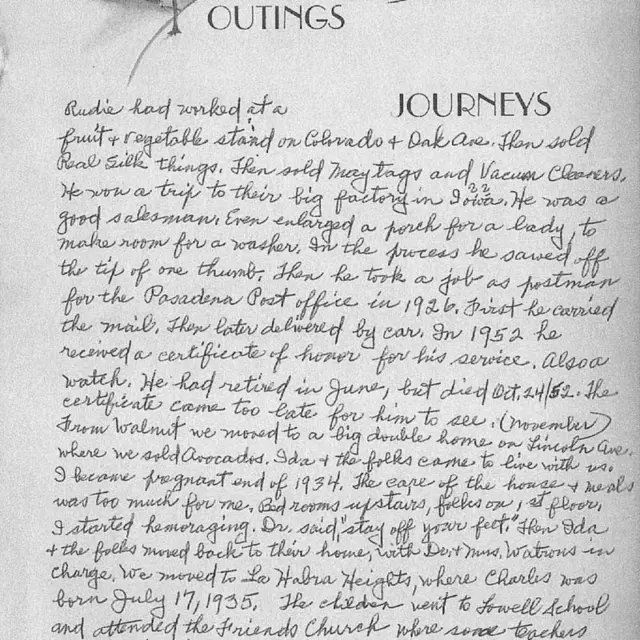 OUTINGS
JOURNEYS
Rudie had worked at a
fruit + vegetable stand on Colorado + Oak Ave. Then sold
Real Silk things. Then sold Maytags and Vacuum Cleaners.
He won a trip to their big factory in Iowa.?? He was a
good salesman. Even enlarged a porch for a lady, to
make room for a washer. In the process he sawed off
the tip of one thumb. Then he took a job as postman
for the Pasadena Post office in 1926. First he carried
the mail. Then later delivered by car. In 1952 he
received a certificate of honor for his service. Also a
watch. He had retired in June, but died Oct. 24/52. The
certificate came too late for him to see. (November)
From Walnut we moved to a big double home on Lincoln Ave.
where we sold Avocados. Ida + the folks came to live with us.
I became pregnant end of 1934. The care of the house + meals
was too much for me. Bed rooms upstairs, folks on 1st floor.
I started hemoraging. Dr. said "stay off your feet." Then Ida
+ the folks moved back to their home, with Dr. + Mrs. Watsons in
charge. We moved to La Habra Heights, where Charles was
born July 17, 1935. The children went to Lowell School
and attended the Friends Church where some teachers